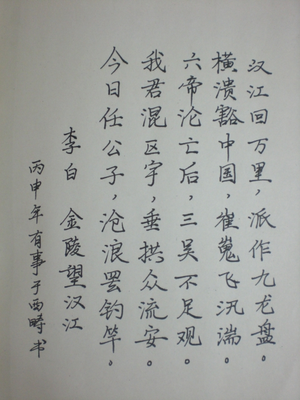 汉江回万里，派作九龙盘。
横溃豁中国，崔嵬飞汛湍。
六帝沦亡后，三吴不足观。
我君混区宇，垂拱众流安。
今日任公子，沧浪罢钓竿。
李白 金陵望汉江
丙申年有事于西畤书